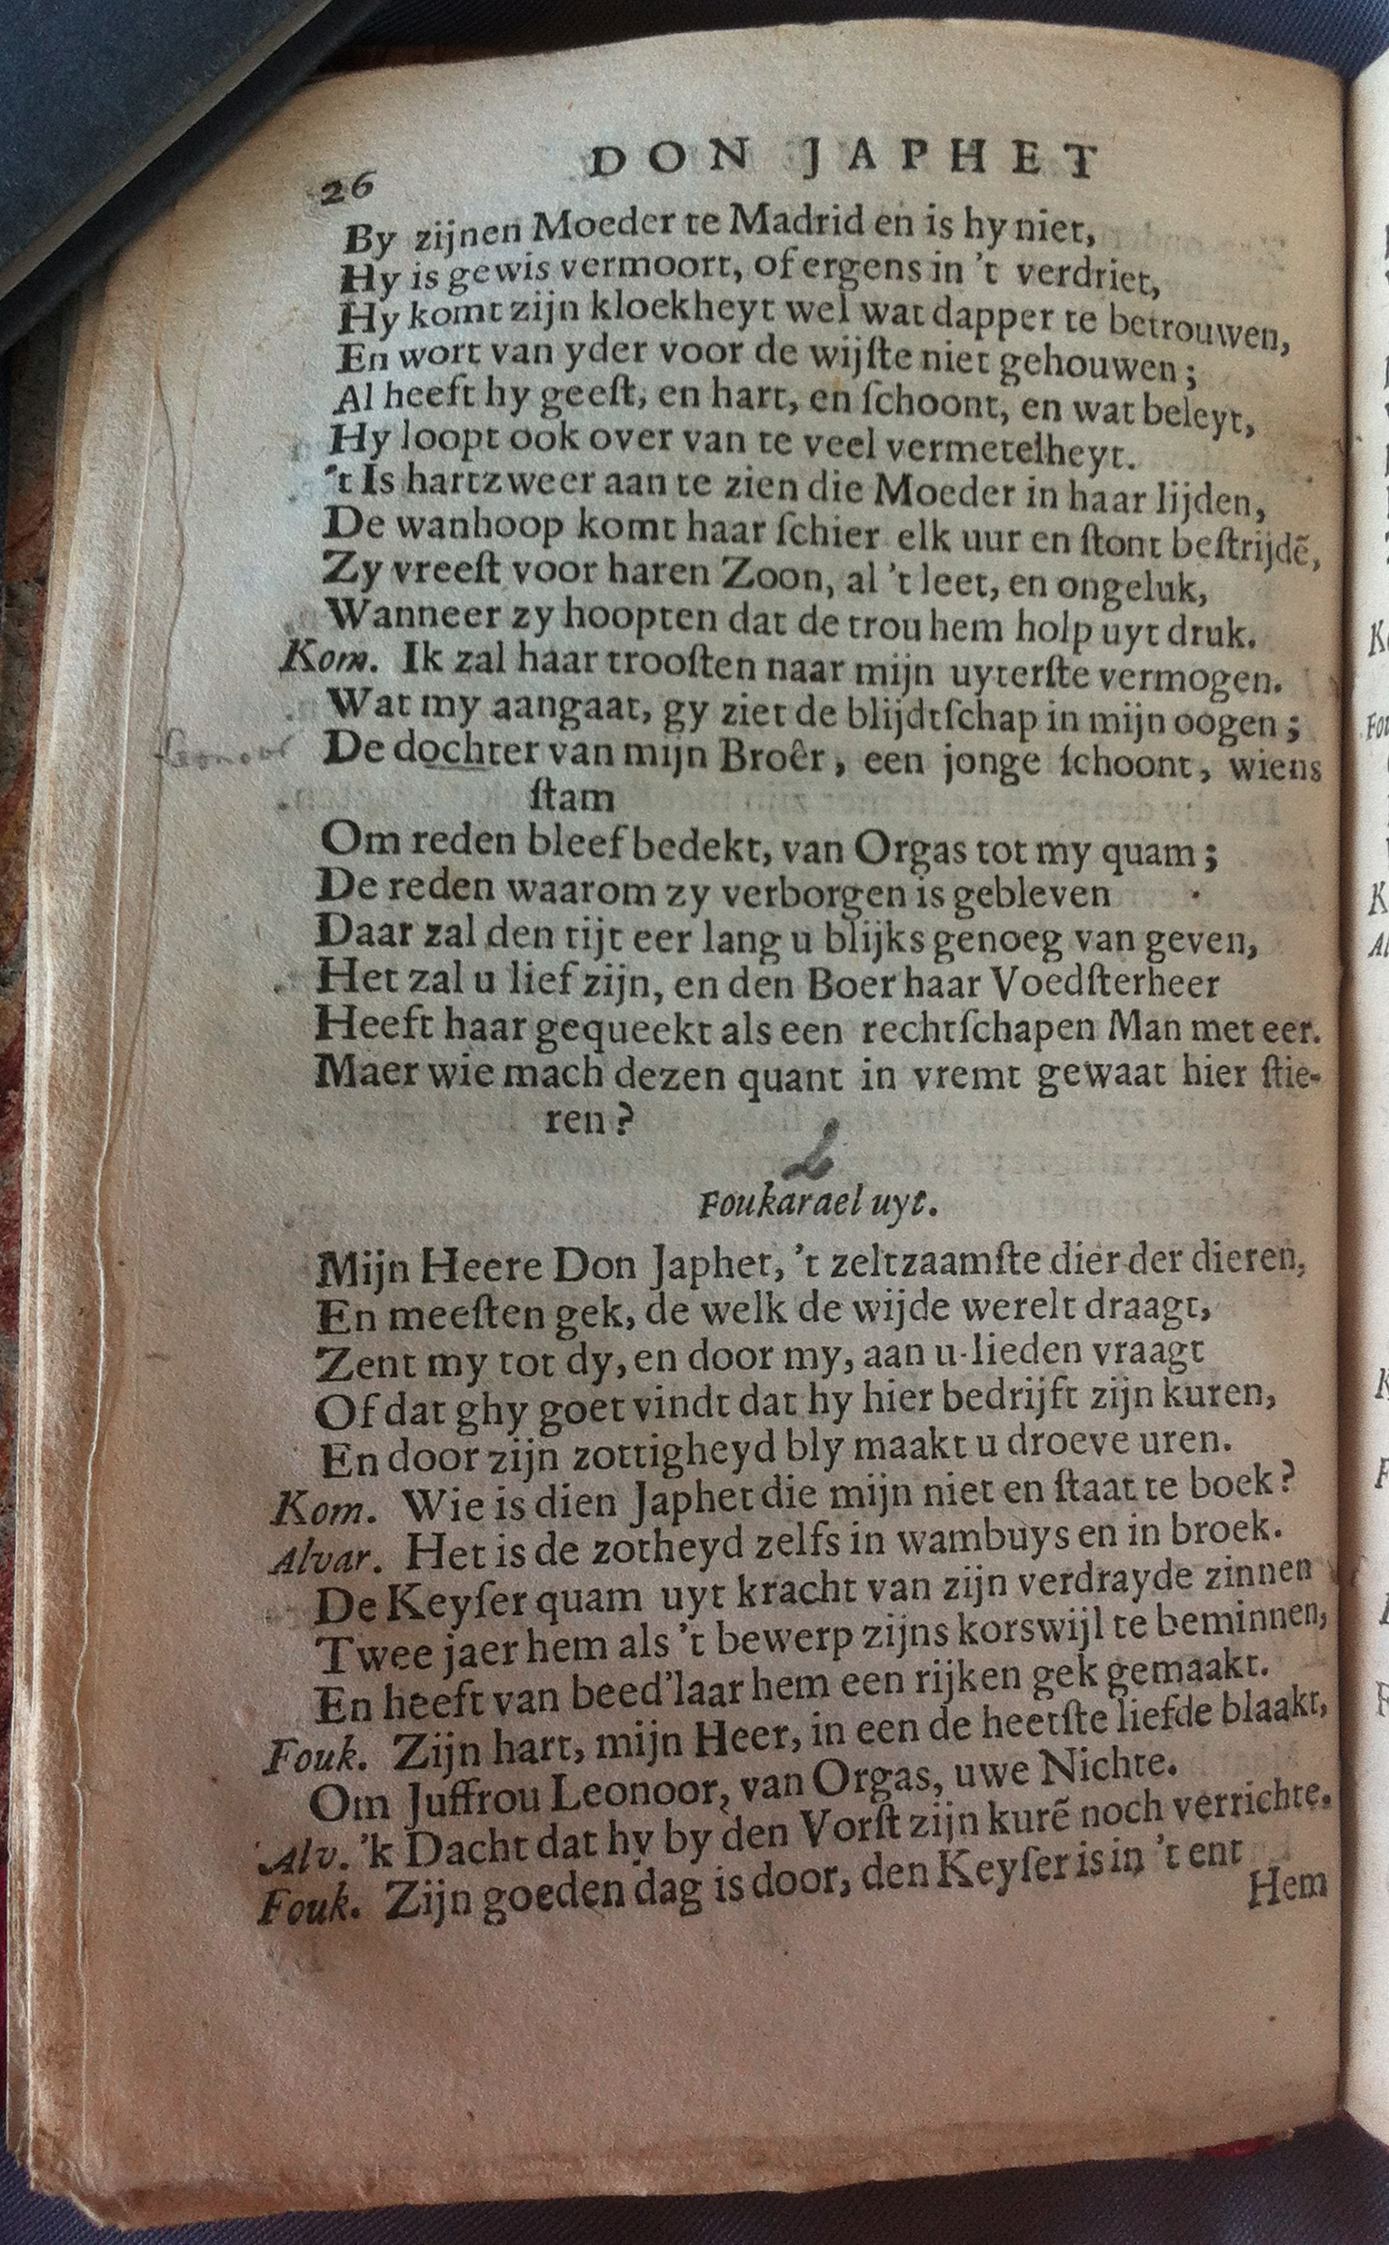 26
DON JAPHET
By zijnen Moeder te Madrid en is hy niet,
Hy is gewis vermoort, of ergens in 't verdriet,
Hy komt zijn kloekheyt wel wat dapper te betrouwen,
En wort van yder voor de wijſte niet gehouwen;
Al heeft hy geeſt, en hart, en ſchoont, en wat beleyt,
Hy loopt ook over van te veel vermetelheyt.
't Is hartzweer aan te zien die Moeder in haar lijden,
De wanhoop komt haar ſchier elk uur en ſtont beſtrijdẽ,
Zy vreeſt voor haren Zoon, al 't leet, en ongeluk,
Wanneer zy hoopten dat de trou hem holp uyt druk.
Kom. Ik zal haar trooſten naar mijn uyterſte vermogen.
Wat my aangaat, gy ziet de blijdtſchap in mijn oogen;
Leonoor
De dochter van mijn Broêr, een jonge ſchoont, wiens
ſtam
Om reden bleef bedekt, van Orgas tot my quam;
De reden waarom zy verborgen is gebleven
Daar zal den tijt eer lang u blijks genoeg van geven,
Het zal u lief zijn, en den Boer haar Voedſterheer
Heeft haar gequeekt als een rechtſchapen Man met eer.
Maer wie mach dezen quant in vremt gewaat hier ſtie-
ren?
2
Foukarael uyt.
Mijn Heere Don Japhet, 't zeltzaamſte dier der dieren,
En meeſten gek, de welk de wijde werelt draagt,
Zent my tot dy, en door my, aan u-lieden vraagt
Of dat ghy goet vindt dat hy hier bedrijft zijn kuren,
En door zijn zottigheyd bly maakt u droeve uren.
Kom. Wie is dien Japhet die mijn niet en ſtaat te boek?
Alvar. Het is de zotheyd zelfs in wambuys en in broek.
De Keyſer quam uyt kracht van zijn verdrayde zinnen
Twee jaer hem als 't bewerp zijns korswijl te beminnen,
En heeft van beed'laar hem een rijken gek gemaakt.
Fouk. Zijn hart, mijn Heer, in een de heetſte liefde blaakt,
Om Juffrou Leonoor, van Orgas, uwe Nichte.
Alv. 'k Dacht dat hy by den Vorſt zijn kurẽ noch verrichte.
Fouk. Zijn goeden dag is door, den Keyſer is in 't ent
Hem